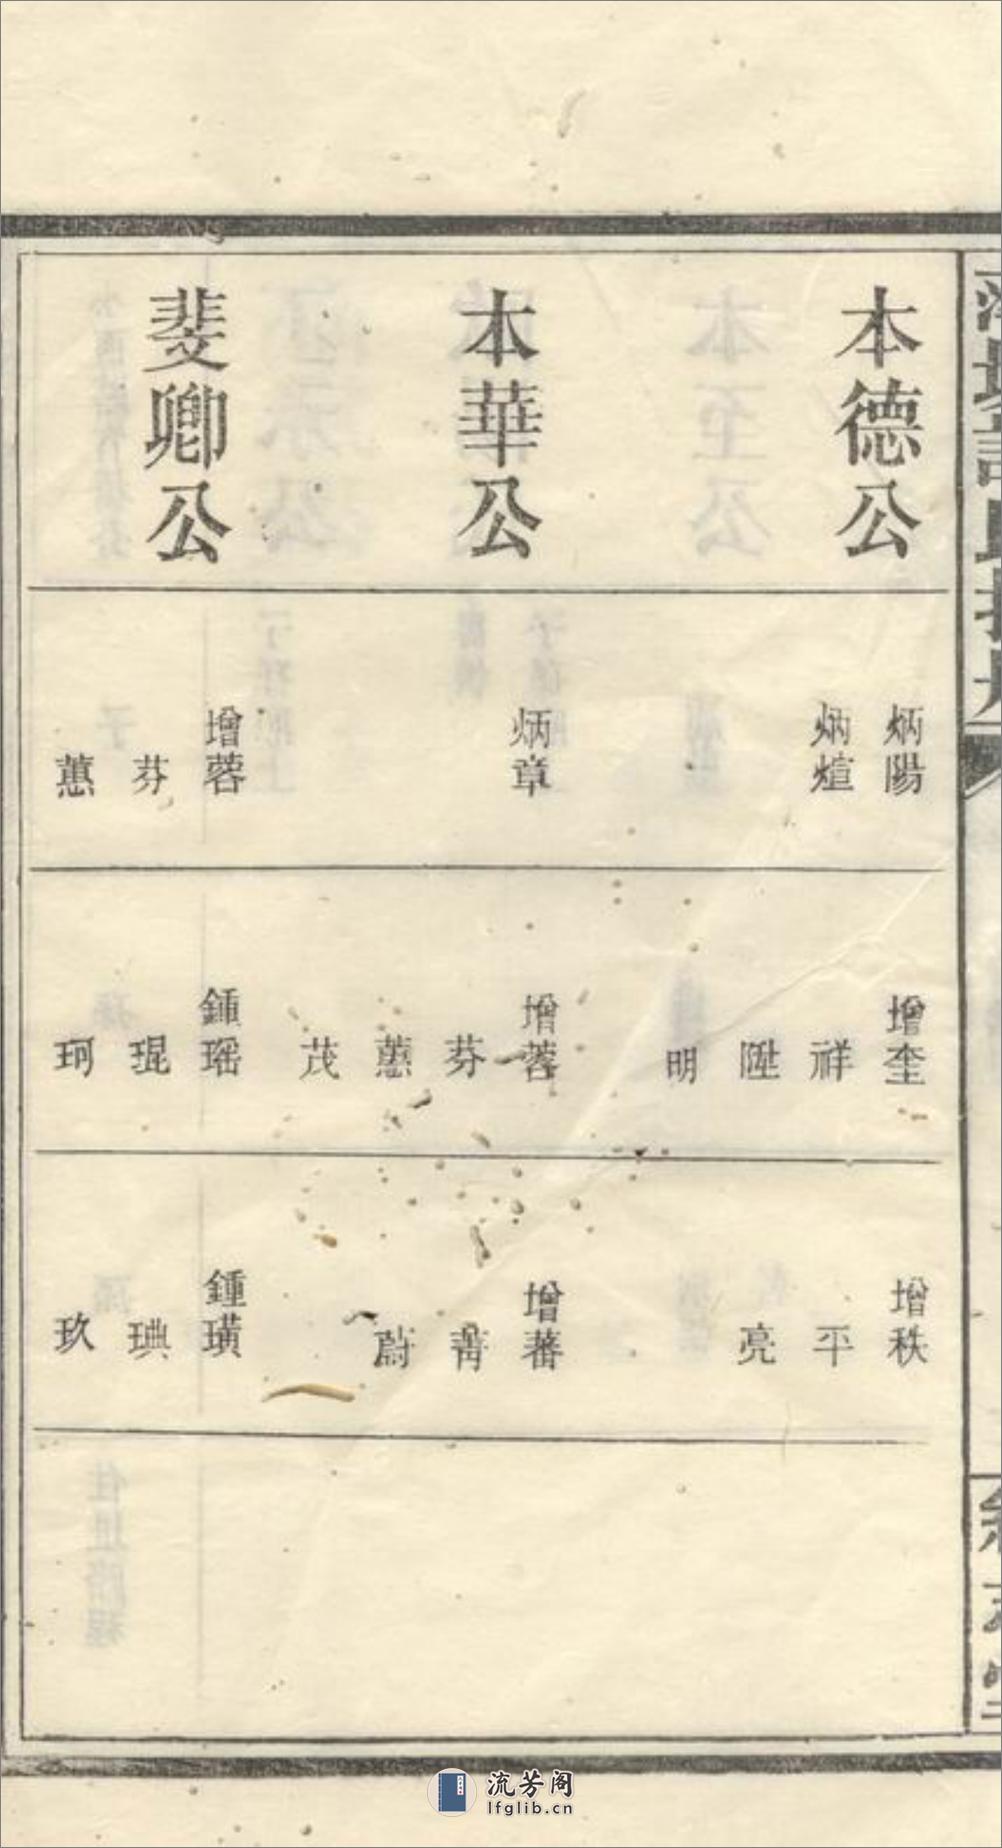 本德公
炳陽
炳煊
增奎
祥
陞
明
增秩
平
亮
本華公
炳章
增蓉
芬
蕙
茂
增蕃
菁
蔚
斐卿公
增蓉
芬
蕙
鍾瑶
琨
珂
鍾璜
琠
玖
流芳阁
lfglib.cn